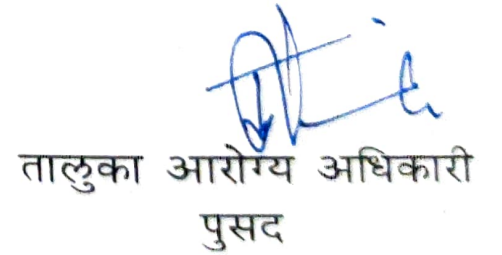 तालुका आरोग्य अधिकारी
पुसद